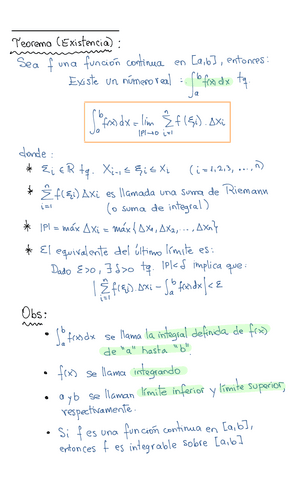 Teorema (Existencia):
Sea f una función continua en [a,b], entonces:
Existe un número real : ∫_a^b f(x) dx tq
∫_a^b f(x) dx = lím_{|P|→0} Σ_{i=1}^n f(ξi) . Δxi
donde:
* ξi ∈ R tq. Xi-1 ≤ ξi ≤ Xi (i=1,2,3, ..., n)
* Σ_{i=1}^n f(ξi) Δxi es llamada una suma de Riemann
(o suma de integral)
* |P| = máx Δxi = máx {Δx1, Δx2, ..., Δxn}
* El equivalente del último límite es:
Dado ε>0, ∃ δ>0 tq. |P|<δ implica que:
| Σ_{i=1}^n f(ξi). Δxi - ∫_a^b f(x)dx | < ε
Obs:
• ∫_a^b f(x)dx se llama la integral definida de f(x)
de "a" hasta "b".
• f(x) se llama integrando
• a y b se llaman límite inferior y límite superior,
respectivamente.
• Si f es una función continua en [a,b],
entonces f es integrable sobre [a,b]